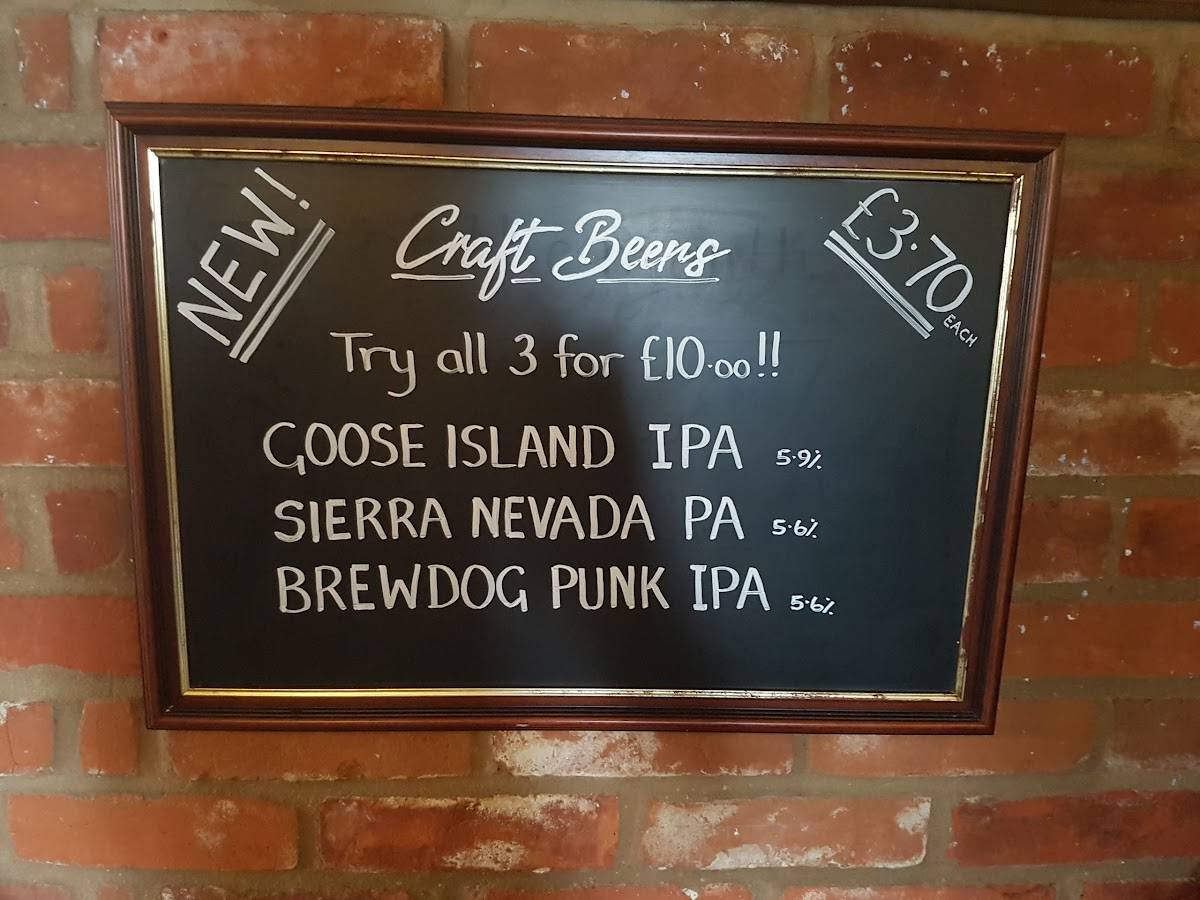 NEW!
Craft Beers
£3.70
EACH
Try all 3 for £10.00!!
GOOSE ISLAND IPA 5.9%
SIERRA NEVADA PA 5.6%
BREWDOG PUNK IPA 5.6%